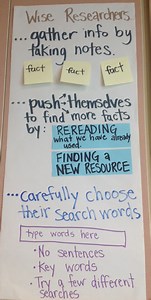 Wise Researchers
...gather info by
taking notes.
fact
fact
fact
...push themselves
to find more facts
by:
REREADING
what we have already
used.
FINDING A
NEW RESOURCE
...carefully choose
their search words
type words here
• No sentences
• Key words
• Try a few different
searches